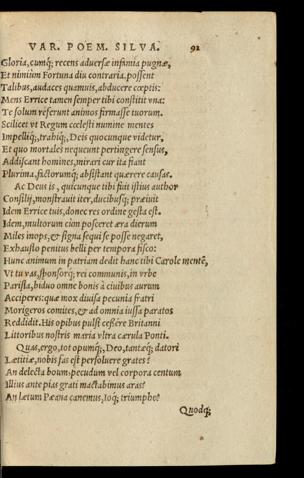 VAR. POEM. SILVA. 92
Gloria, cumq; recens aduersæ infamia pugnæ,
Et nimiùm Fortuna diu contraria, possent
Talibus, audaces quamuis, abducere cœptis:
Mens Errice tamen semper tibi constitit vna:
Te solum referunt animos firmasse tuorum.
Scilicet vt Regum cœlesti numine mentes
Impellitq;, trahitq;, Deis quocunque videtur,
Et quo mortales nequeunt pertingere sensus,
Addiscant homines, mirari cur ita fiant
Plurima, factorumq; absistant quærere causas.
Ac Deus is, quicunque tibi fuit istius author
Consilij, monstrauit iter, ducibusq; præiuit
Idem Errice tuis, donec res ordine gesta est.
Idem, multorum cùm posceret æra dierum
Miles inops, & signa sequi se posse negaret,
Exhausto penitus belli per tempora fisco:
Hunc animum in patriam dedit hanc tibi Carole mentẽ,
Vt tu vas, sponsorq; rei communis, in vrbe
Parisia, biduo omne bonis à ciuibus aurum
Acciperes: quæ mox diuisa pecunia fratri
Morigeros comites, & ad omnia iussa paratos
Reddidit. His opibus pulsi cessêre Britanni
Littoribus nostris maria vltra cærula Ponti.
Quas, ergo, tot opumq;, Deo, tantæq; datori
Lætitiæ, nobis fas est persoluere grates?
An delecta boum: pecudum vel corpora centum
Illius ante pias grati mactabimus aras?
An lætum Pæana canemus, Ioq; triumphe?
Quodq;